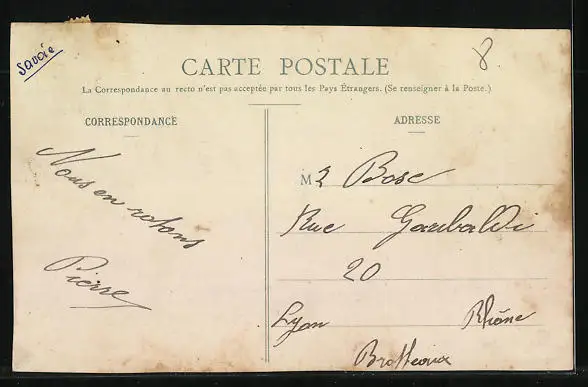 Savoie
8
CARTE POSTALE
La Correspondance au recto n'est pas acceptée par tous les Pays Étrangers. (Se renseigner à la Poste.)
CORRESPONDANCE
Nous en
Pierre
ADRESSE
M Bosc
Rue Garibaldi
20
Lyon Rhône
Brotteaux